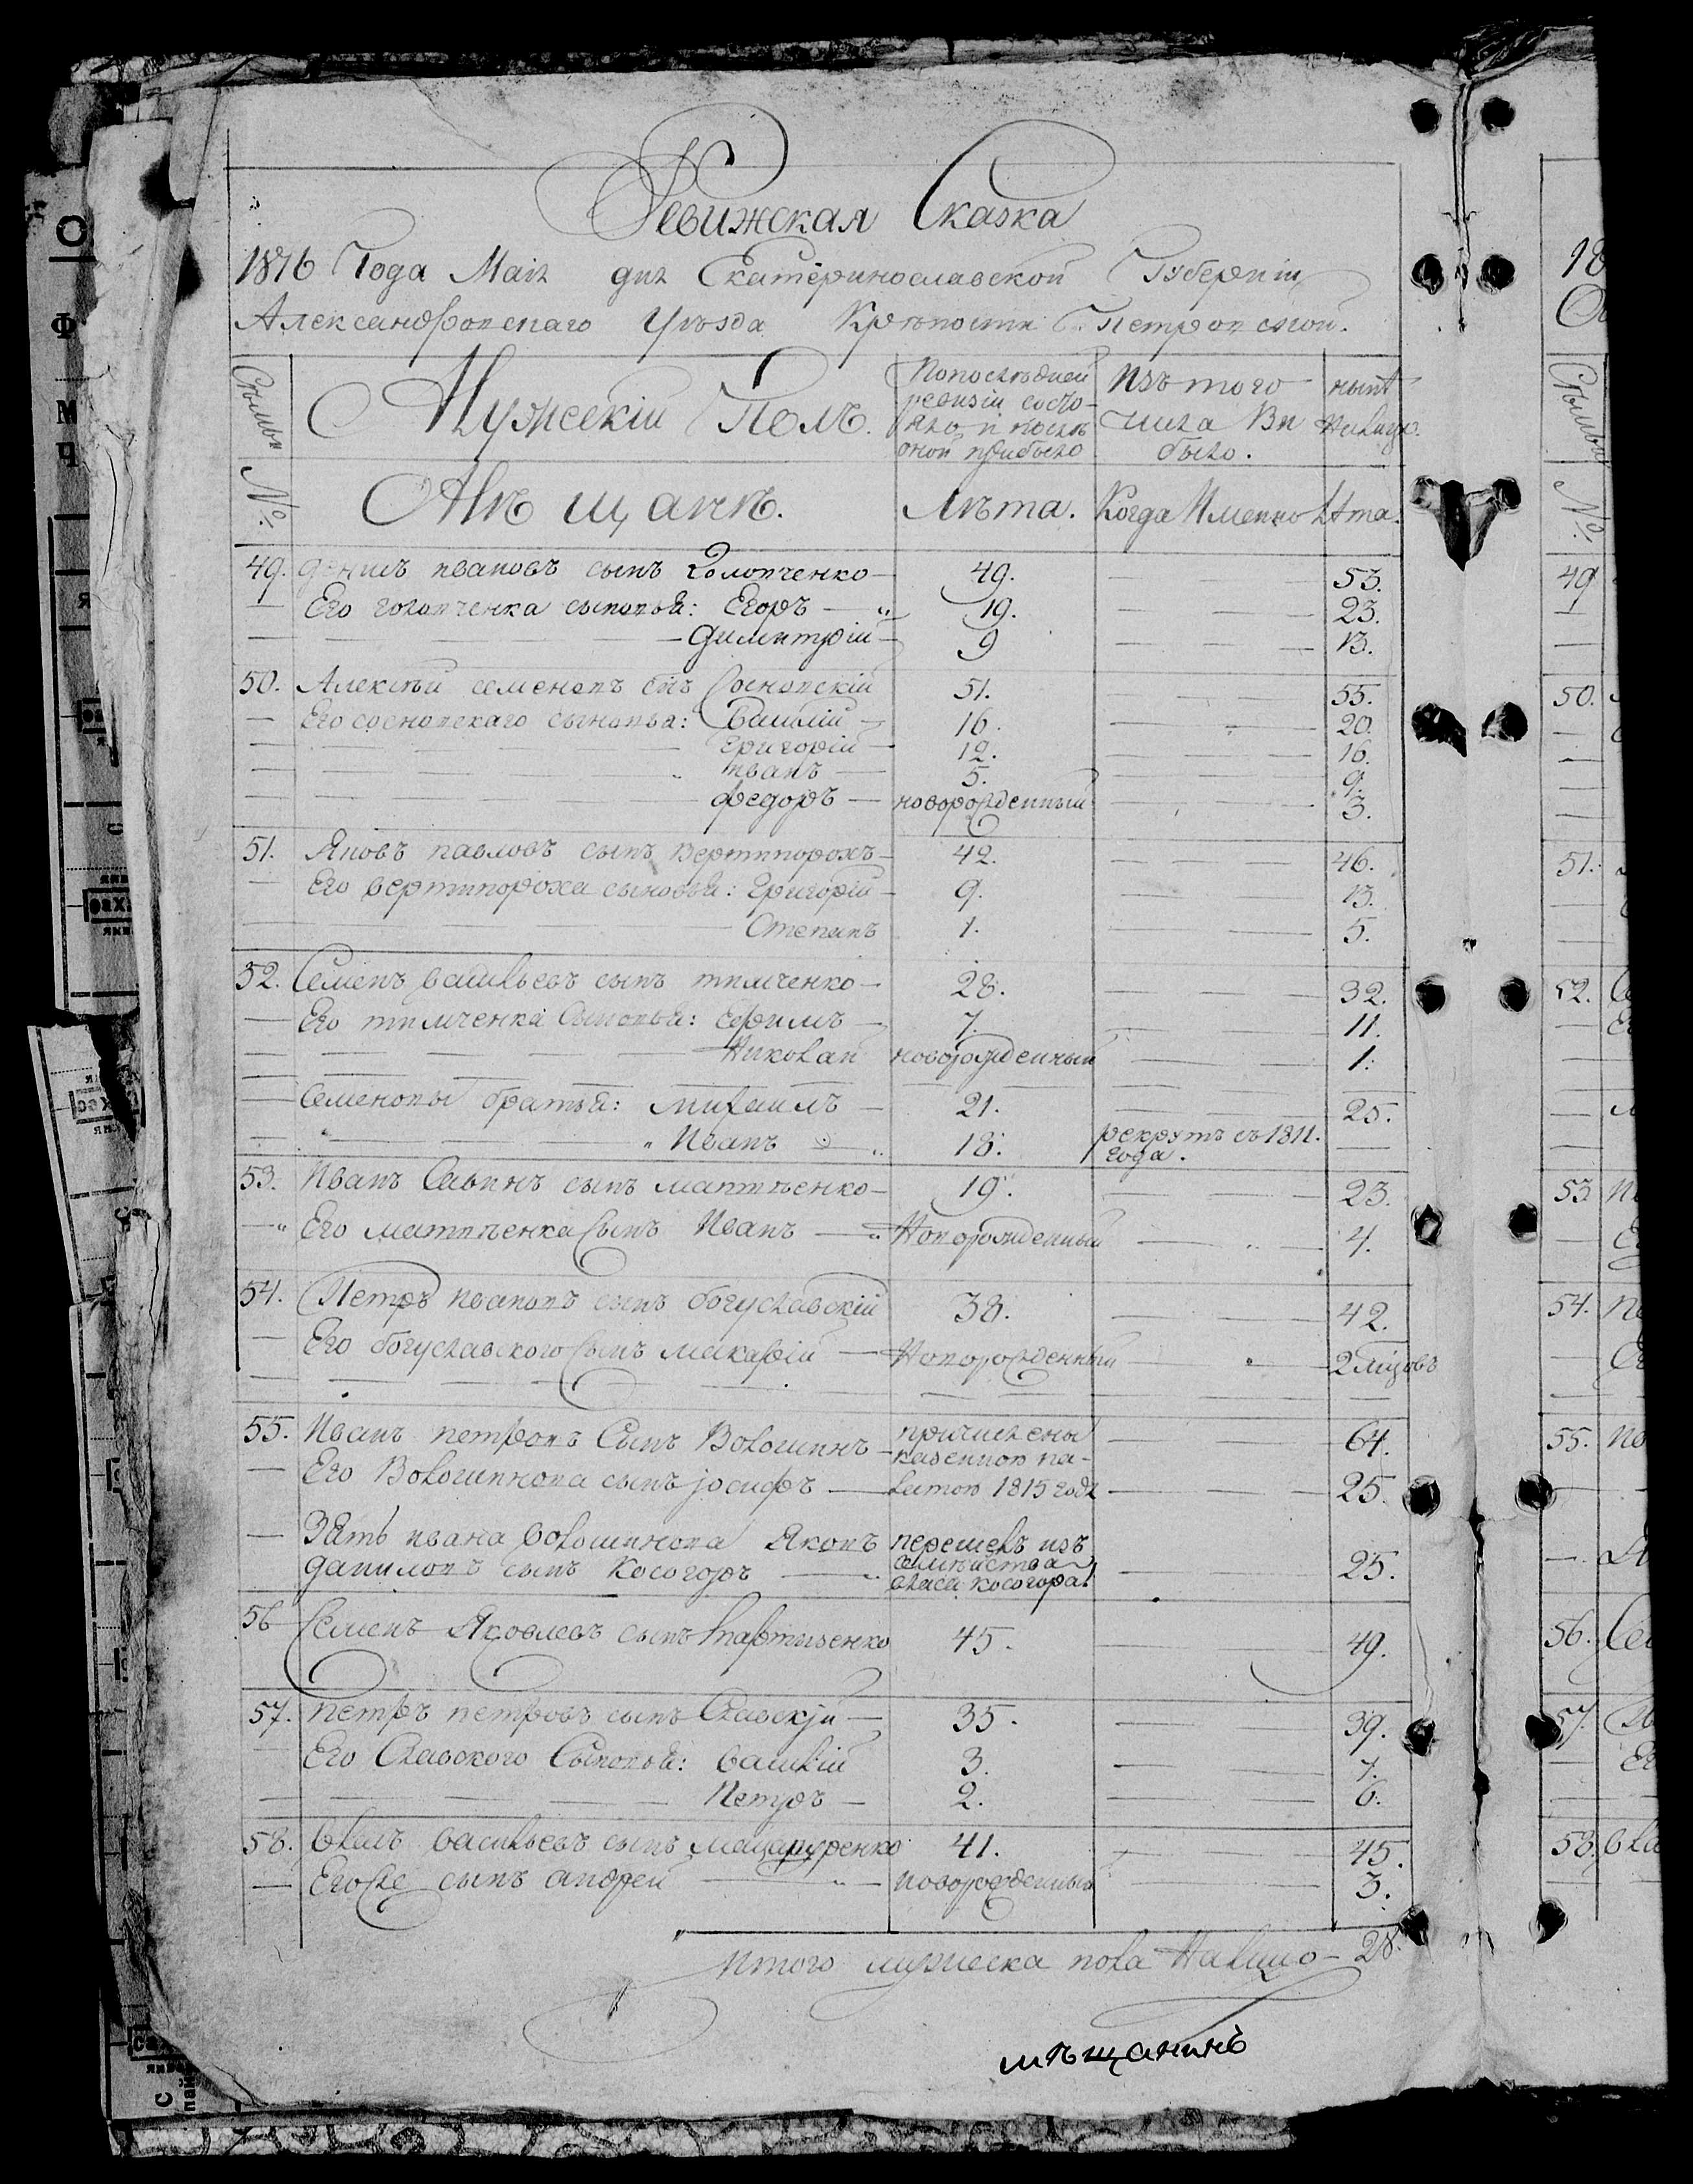 Ревижская Сказка
1816 Года Маія дня Екатеринославской Губерніи
Александровскаго Уъзда Крѣпости Петровской.
Мужескій Полъ.
Попослѣдней
ревизіи состо-
яло и послѣ
оной прибыло
Изъ того
числа Вы
было.
нынѣ
Налицо.
Семьи
№.
Мѣщанѣ.
Лѣта.
Когда Именно
Лѣта.
49. Данилъ ивановъ сынъ Головченко — 49. 53.
Его головченка сыновья: Егоръ — 19. 23.
Димитрій — 9 13.
50. Алексѣй семеновъ снъ Сосновскій 51. 55.
Его сосновскаго сыновья: Василій — 16. 20.
Григорій — 12. 16.
иванъ — 5. 9.
федоръ — новорожденный 3.
51. Яковъ павловъ сынъ Вертипорохъ — 42. 46.
Его вертипороха сыновья: Григорій — 9. 13.
Степанъ 1. 5.
52. Семенъ васильевъ сынъ тимченко — 28. 32.
Его тимченка Сыновья: Ефимъ — 7. 11.
Николай новорожденный 1.
Семеновы братья: михаилъ — 21. 25.
Иванъ 18. рекрутъ съ 1811.
года.
53. Иванъ Савинъ сынъ матвѣенко — 19. 23.
Его матвѣенка Сынъ Иванъ — Новорожденный 4.
54. Петръ ивановъ сынъ богуславскій 38. 42.
Его богуславского Сынъ макарій — Новорожденный 2 мѣцовъ
55. Иванъ петровъ Сынъ Волошинъ — причислены 64.
казенною па-
Его Волошинова сынъ іосифъ — латою 1815 года 25.
Зять ивана волошинова Яковъ перешелъ изъ
даниловъ сынъ Косогоръ — семѣйства 25.
власа косогора
56 Семенъ Яковлевъ сынъ 45. 49.
57. Петръ петровъ сынъ Славскій — 35. 39.
Его Славского Сыновья: Василій 3. 7.
Петръ — 2. 6.
58. Власъ васильевъ сынъ мацапуренко 41. 45.
Его же сынъ андрей — новорожденный 3.
Итого мужеска пола Налицо — 28.
мѣщанинъ
18
Семьи
№.
49
50.
51.
52.
53
54.
55.
56.
57.
58.